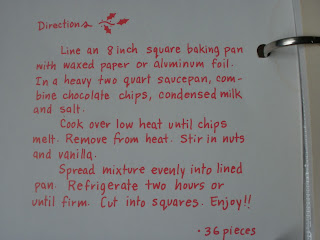 Directions
Line an 8 inch square baking pan
with waxed paper or aluminum foil.
In a heavy two quart saucepan, com-
bine chocolate chips, condensed milk
and salt.
Cook over low heat until chips
melt. Remove from heat. Stir in nuts
and vanilla.
Spread mixture evenly into lined
pan. Refrigerate two hours or
until firm. Cut into squares. Enjoy!!
• 36 pieces